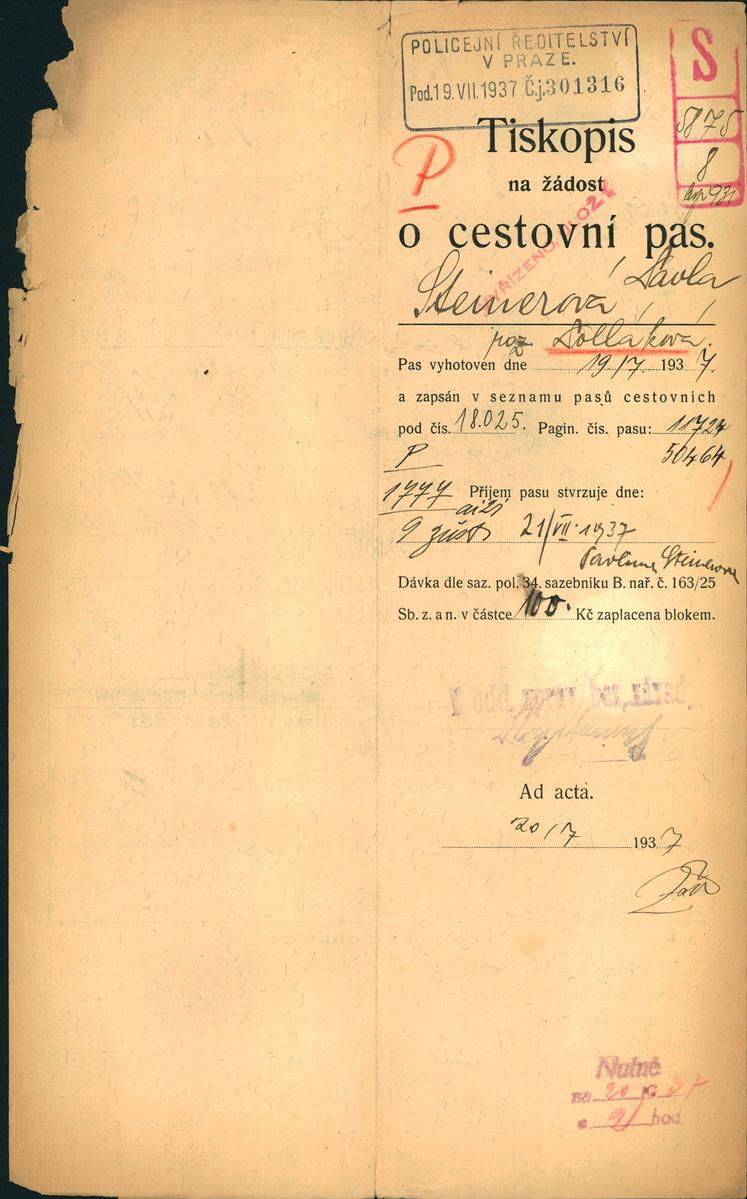 POLICEJNÍ ŘEDITELSTVÍ
V PRAZE.
Pod. 19. VII. 1937 Č.j. 301316
S
5875
8
Tiskopis
P
na žádost
VYŘÍZENO. ULOŽIT
o cestovní pas.
Steinerová Pavla
roz. Pollaková.
Pas vyhotoven dne 19/7. 1937.
a zapsán v seznamu pasů cestovních
pod čís. 18.025. Pagin. čís. pasu: 11724
P 50464
1777 Příjem pasu stvrzuje dne:
9 21/VII. 1937
Pavlina Steinerova
Dávka dle saz. pol. 34. sazebníku B. nař. č. 163/25
Sb. z. a n. v částce 100. Kč zaplacena blokem.
Ad acta.
20/7 1937
Nutné
na 20 37
o 9 hod